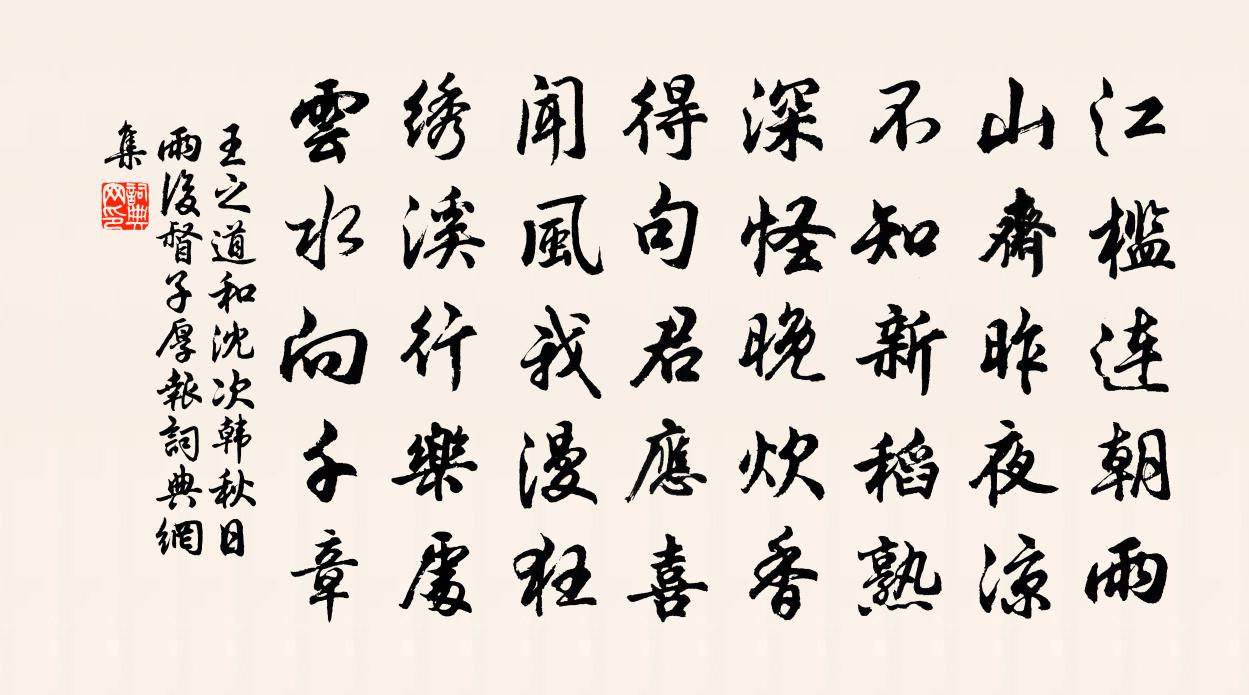 江檻连朝雨
山齋昨夜涼
不知新稻熟
深怪晚炊香
得句君應喜
闻風我漫狂
绣溪行樂處
雲水向千章
王之道和沈次韩秋日
雨後督子厚報詞典網
集
詞典
网印